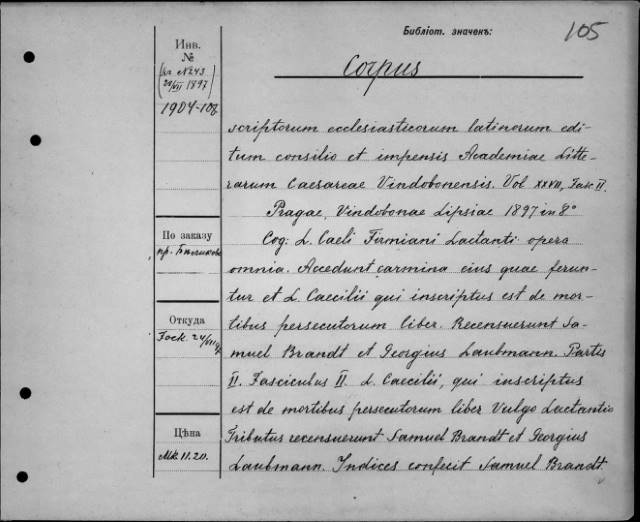 Библіот. значекъ:
105
Corpus
Инв.
№
1904-108
scriptorum ecclesiasticorum latinorum edi-
tum consilio et impensis Academiae Litte-
rarum Caesareae Vindobonensis. Vol XXVII, Fasc II.
Pragae, Vindobonae Lipsiae 1897 in 8°
По заказу
пр.
Cog: L. Caeli Firmiani Lactanti opera
omnia. Accedunt carmina eius quae ferun-
tur et L. Caecilii qui inscriptus est de mor-
Откуда
Fock. 24/VII 97
tibus persecutorum liber. Recensuerunt Sa-
muel Brandt et Georgius Laubmann. Partis
II. Fasciculus II. L. Caecilii, qui inscriptus
est de mortibus persecutorum liber Vulgo Lactantio
Цѣна
Mk. 11.20.
Tributus recensuerunt Samuel Brandt et Georgius
Laubmann. Indices confecit Samuel Brandt.